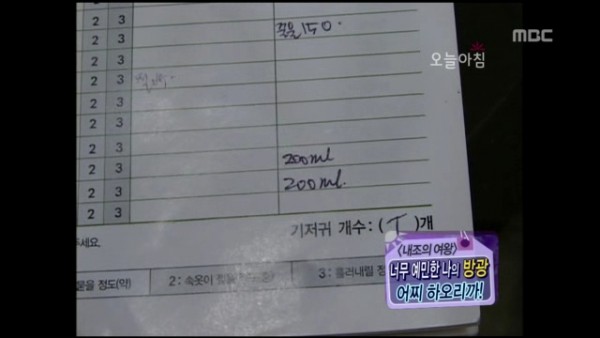 2 3
꿀물 150.
2 3
MBC
오늘아침
2 3
2 3
2 3
2 3
2 3
2 3
200ml
2 3
200ml.
2 3
기저귀 개수 : ( )개
세요.
<내조의 여왕>
너무 예민한 나의 방광
어찌 하오리까!
묻을 정도(약)
2 : 속옷이
3 : 흘러내릴 정